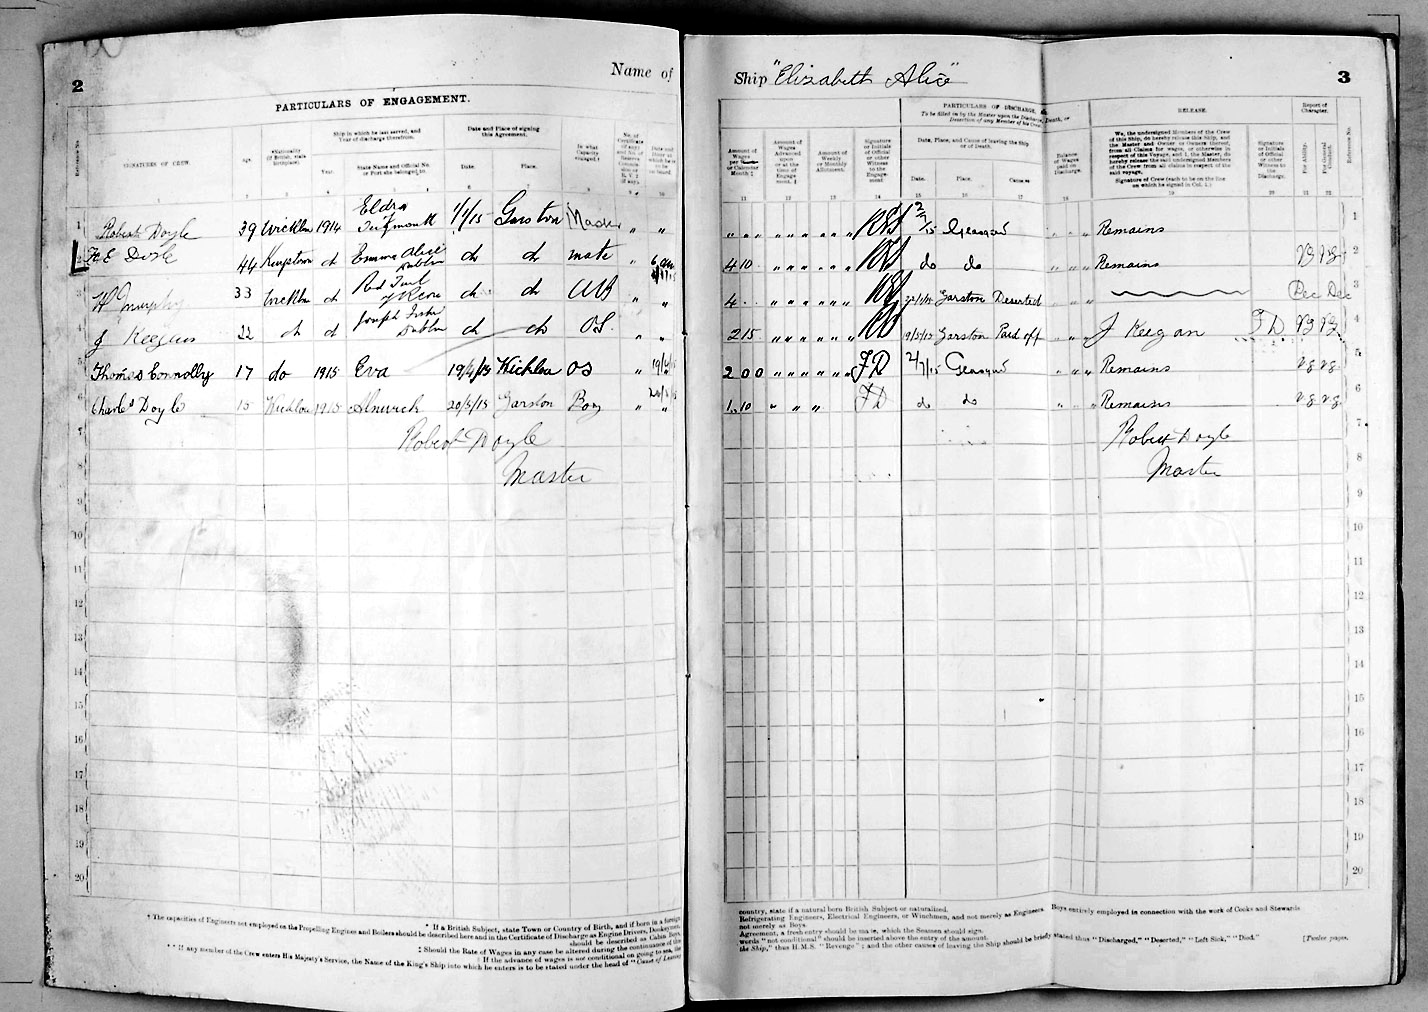 2
Name of
PARTICULARS OF ENGAGEMENT.
SIGNATURES OF CREW.
Age.
Nationality
Ship in which he last served, and
Year of discharge therefrom.
Year.
State Name and Official No.
or Port she belonged to.
Date and Place of signing
this Agreement.
Date.
Place.
In what
Capacity
engaged.†
1 Robert Doyle 39 Wicklow 1914 Eldra 1/1/15 Garston Master " "
2 F E Doyle 44 Kingstown do Emma Alice Dublin do do mate "
3 W Murphy 33 Wicklow do do do AB " "
4 J Keegan 22 do do Joseph Fisher Dublin do do O.S. " "
5 Thomas Connolly 17 do 1915 Eva 19/4/15 Wicklow OS "
6 Charles Doyle 15 Wicklow 1915 Alnwick 20/5/15 Garston Boy " "
7 Robert Doyle
8 Master
9
10
11
12
13
14
15
16
17
18
19
20
* If a British Subject, state Town or Country of Birth, and if born in a foreign
† The capacities of Engineers not employed on the Propelling Engines and Boilers should be described here and in the Certificate of Discharge as Engine Drivers, Donkeymen,
should be described as Cabin Boys.
‡ Should the Rate of Wages in any case be altered during the continuance of this
If the advance of wages is not conditional on going to sea, the
** If any member of the Crew enters His Majesty's Service, the Name of the King's Ship into which he enters is to be stated under the head of "Cause of Leaving
Ship "Elizabeth Alice"
3
PARTICULARS OF DISCHARGE,
To be filled in by the Master upon the Discharge, Death, or
Desertion of any Member of his Crew.
RELEASE.
Report of
Character.
Amount of
Wages
per Week
or Calendar
Month ‡
Amount of
Wages
Advanced
upon
or at the
time of
Engage-
ment. ‡
Amount of
Weekly
or Monthly
Allotment.
Signature
or Initials
of Official
or other
Witness to
the Engage-
ment.
Date, Place, and Cause of leaving this Ship
or of Death.
Date.
Place.
Cause.
Balance
of Wages
paid on
Discharge.
We, the undersigned Members of the Crew
of this Ship, do hereby release this Ship, and
the Master and Owner or Owners thereof,
from all Claims for wages, or otherwise in
respect of this Voyage, and I, the Master, do
hereby release the said undersigned Members
of the Crew from all claims in respect of the
said voyage.
Signature of Crew (each to be on the line
on which he signed in Col. 1.)
Signature
or Initials
of Official
or other
Witness to
the
Discharge.
For Ability.
For General Conduct.
Reference No.
11 12 13 14 15 16 17 18 19 20 21 22
" " " " " " " 2/7/15 Glasgow " " " Remains 1
4 10 " " " " " do do " " " Remains VG VG
4 " " " " " " Garston Deserted " " " Dec Dec 3
2 15 " " " " " 19/5/15 Garston Paid off " " " J Keegan F D VG VG 4
2 0 0 " " " " " FD 2/7/15 Glasgow " " " Remains vg vg 5
1 10 " " " FD do do " " " Remains vg vg 6
Robert Doyle 7
Master 8
9
10
11
12
13
14
15
16
17
18
19
20
country, state if a natural born British Subject or naturalized.
Refrigerating Engineers, Electrical Engineers, or Winchmen, and not merely as Engineers. Boys entirely employed in connection with the work of Cooks and Stewards
not merely as Boys.
Agreement, a fresh entry should be made, which the Seamen should sign.
words "not conditional" should be inserted above the entry of the amount.
the Ship," thus H.M.S. "Revenge"; and the other causes of leaving the Ship should be briefly stated thus "Discharged," "Deserted," "Left Sick," "Died."
[Twelve pages.